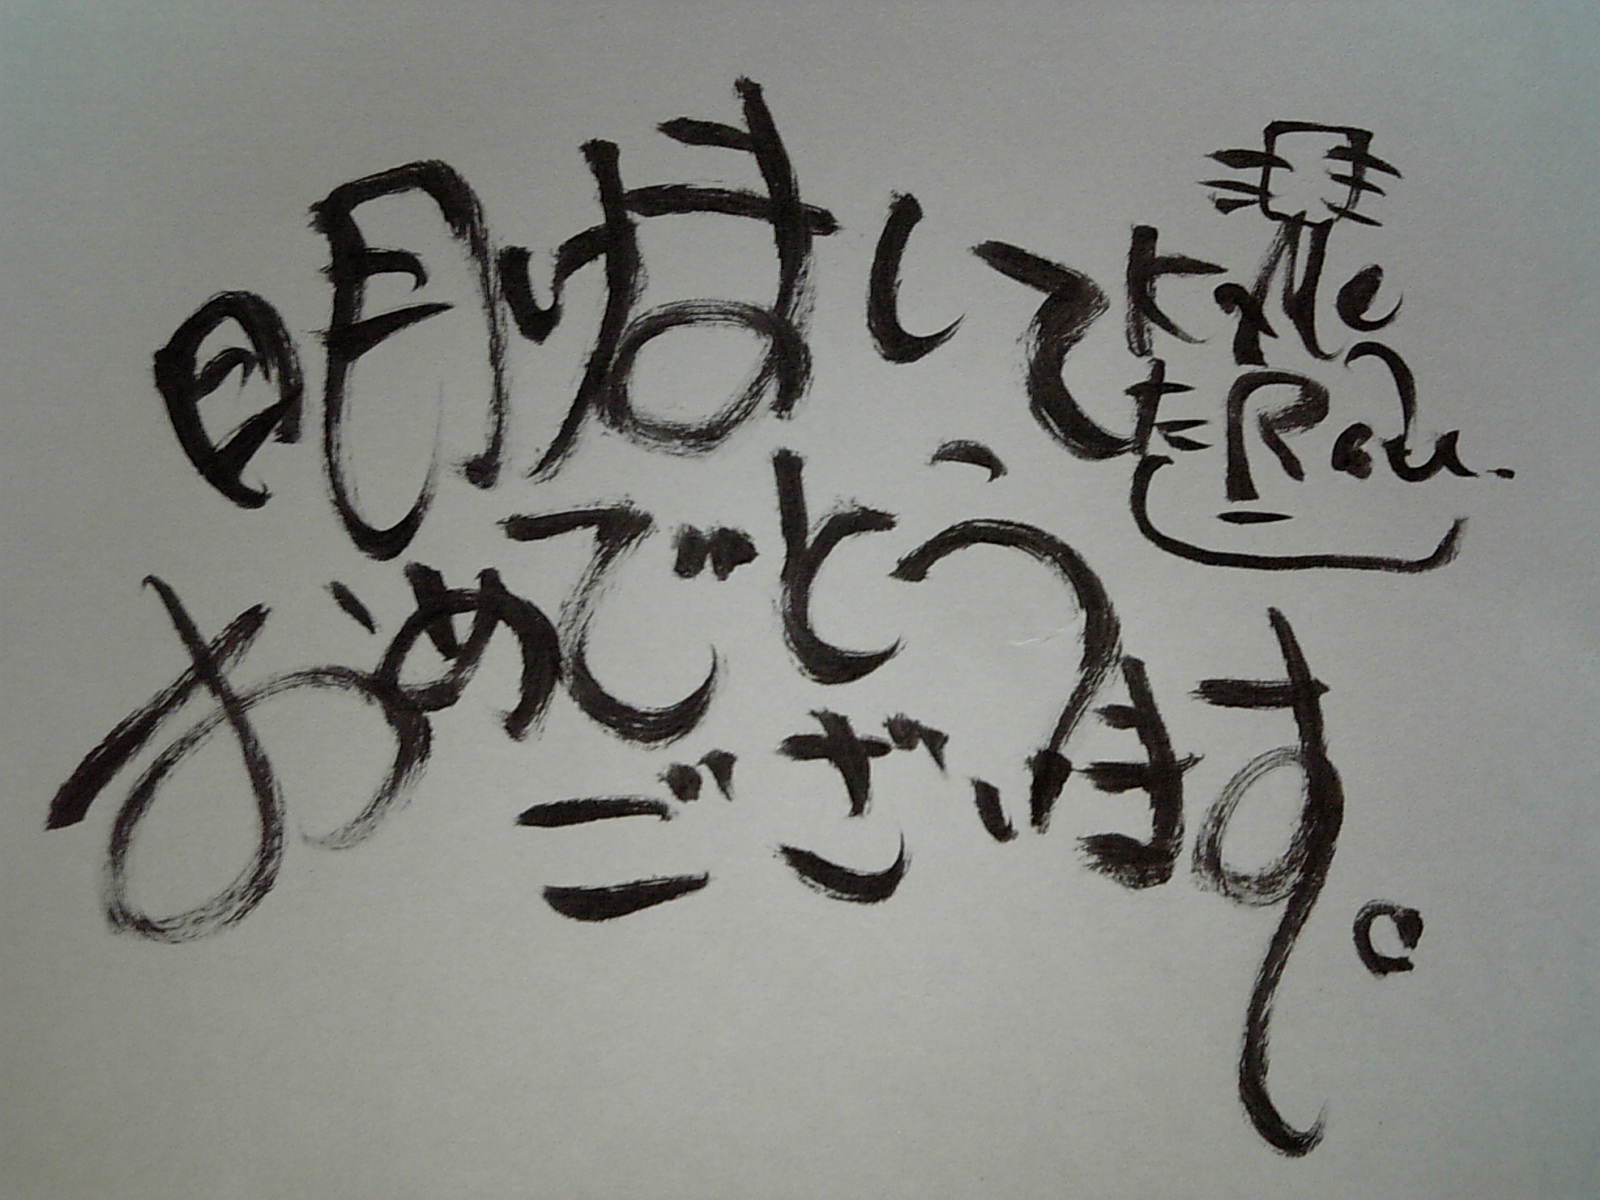 明けまして
おめでとう
ございます。